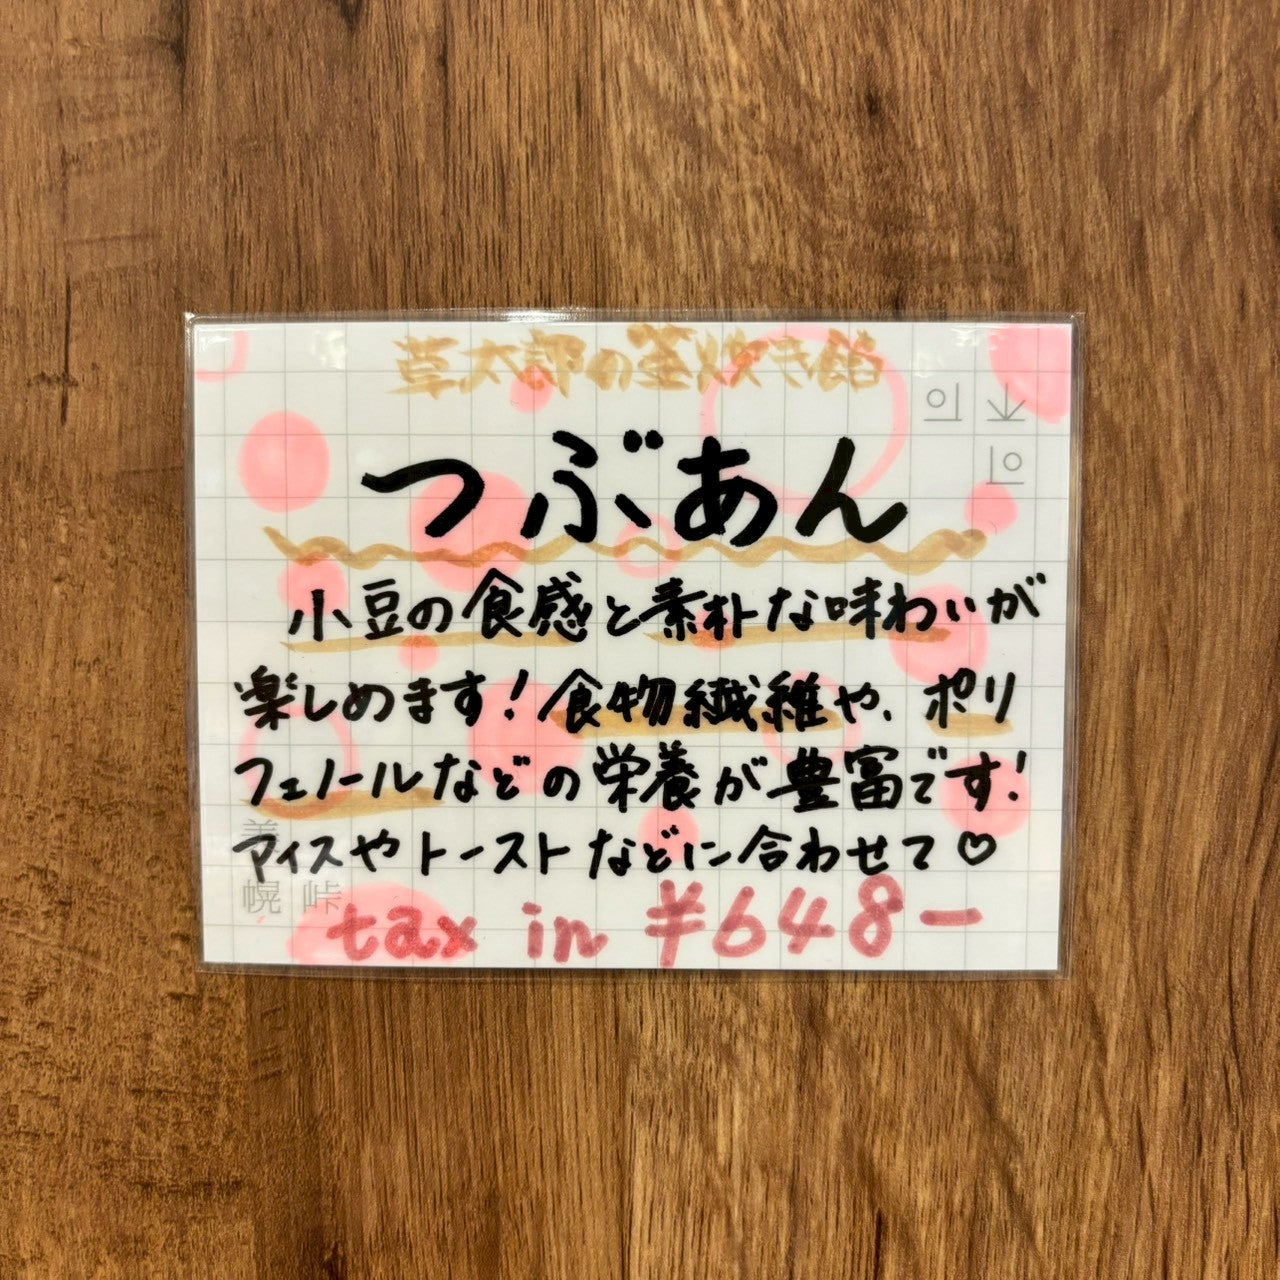 草太郎の釜炊き餡
つぶあん
小豆の食感と素朴な味わいが
楽しめます！食物繊維や、ポリ
フェノールなどの栄養が豊富です！
アイスやトーストなどに合わせて♡
幌 峠
tax in ¥648-